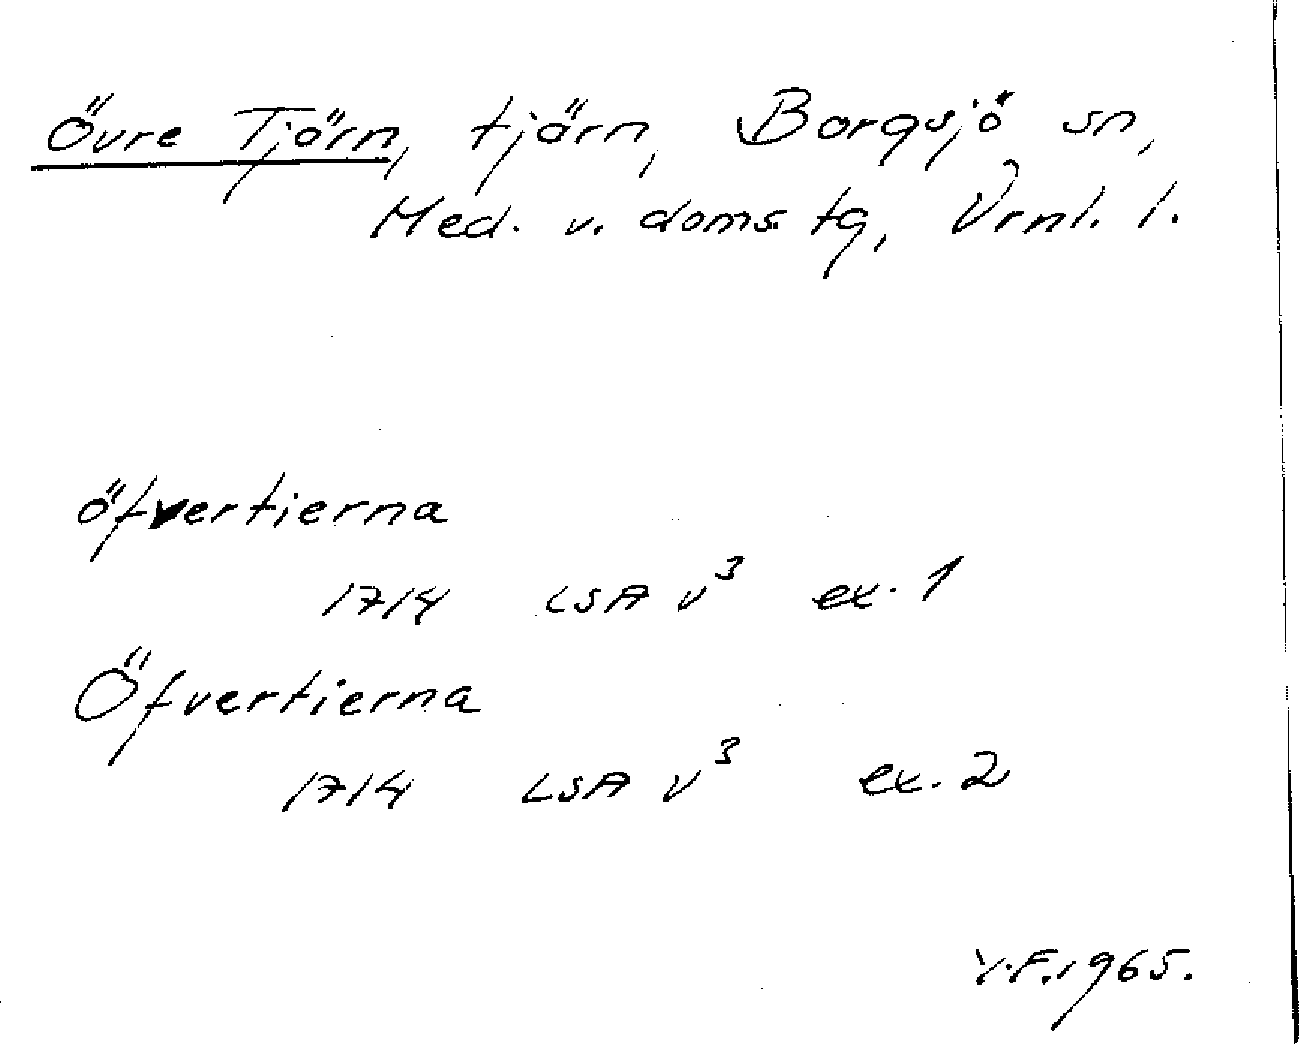 Övre Tjärn, tjärn, Borgsjö sn,
Med. v. doms tg, Vrnl. l.
öfvertierna
1714 LSA v³ ex. 1
Öfvertierna
1714 LSA v³ ex. 2
Y.F. 1965.